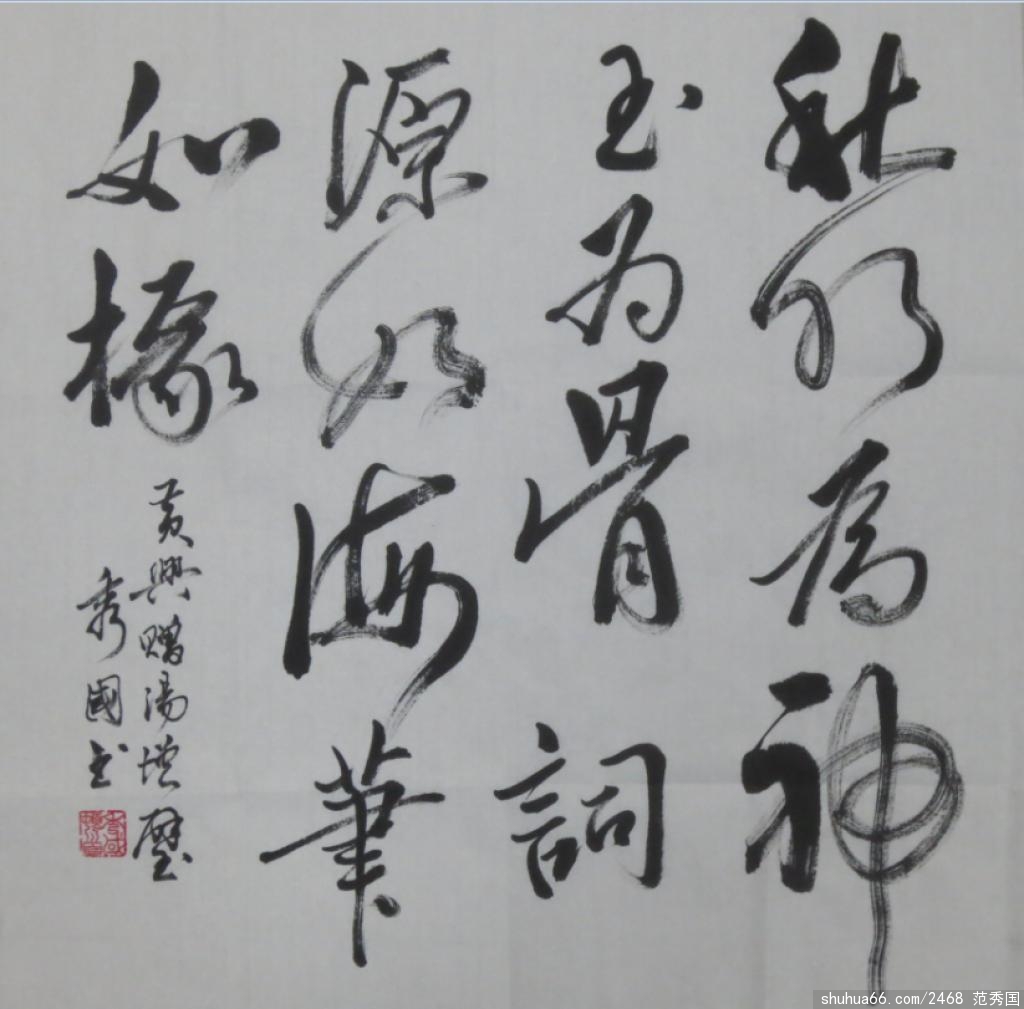 秋水為神
玉为骨詞
源如海筆
如椽
黄興贈湯增璧
秀國书
shuhua66.com/2468 范秀国